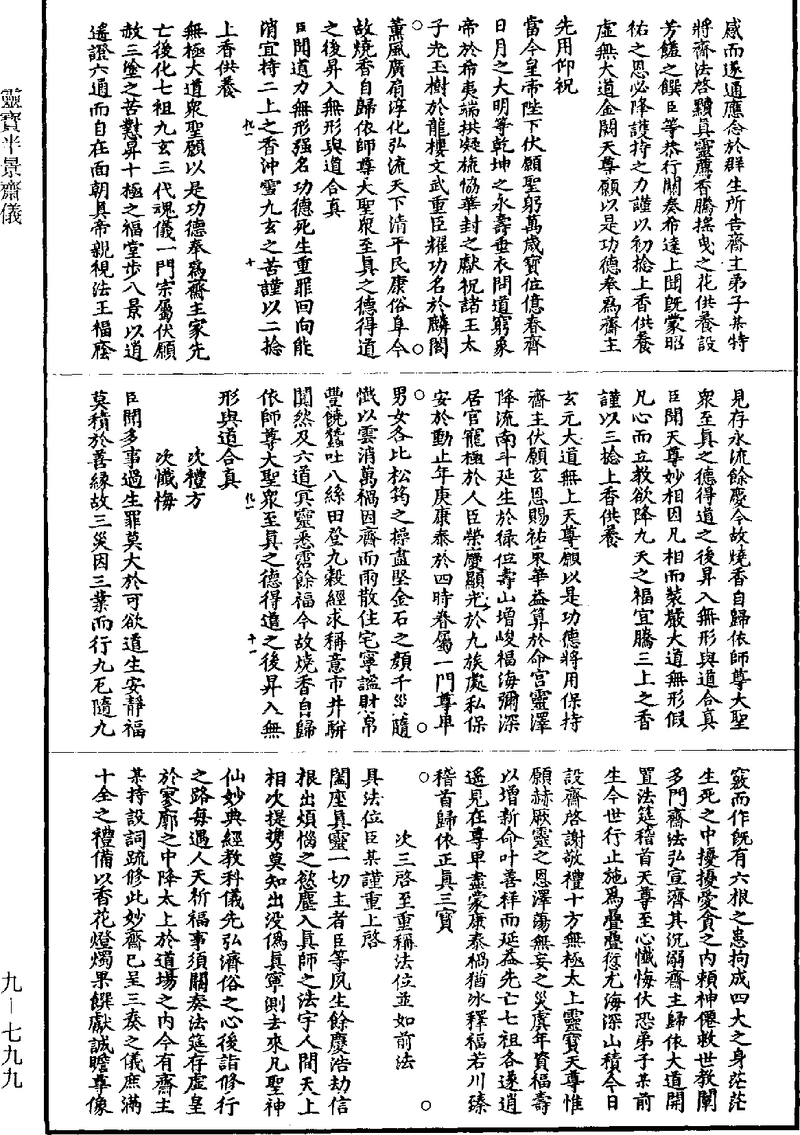 靈寶半景齋儀
感而遂通應念於群生所告齋主弟子某特
將齋法啓黷真靈薦香騰搖曳之花供養設
芳饈之饌臣等恭行關奏希達上聞既蒙昭
祐之恩必降護持之力謹以初捻上香供養
虛無大道金闕天尊願以是功德奉爲齋主
先用仰祝
當今皇帝陛下伏願聖躬萬歲寶位億春齊
日月之大明等乾坤之永壽垂衣問道窮象
帝於希夷端拱凝旒協華封之獻祝諸王太
子光玉樹於龍樓文武重臣耀功名於麟閣
薰風廣扇淳化弘流天下清平民康俗阜今
故燒香自歸依師尊大聖衆至真之德得道
之後昇入無形與道合真
臣聞道力無形强名功德死生重罪回向能
消宜持二上之香沖雪九玄之苦謹以二捻
上香供養
無極大道衆聖願以是功德奉爲齋主家先
亡後化七祖九玄三代魂儀一門宗屬伏願
赦三塗之苦懟昇十極之福堂步八景以逍
遙證六通而自在面朝真帝親視法王福廕
見存永流餘慶今故燒香自歸依師尊大聖
衆至真之德得道之後昇入無形與道合真
臣聞天尊妙相因凡相而裝嚴大道無形假
凡心而立教欲降九天之福宜騰三上之香
謹以三捻上香供養
玄元大道無上天尊願以是功德將用保持
齋主伏願玄恩賜祐東華益算於命宮靈澤
降流南斗延生於祿位壽山增峻福海彌深
居官寵極於人臣榮慶顯光於九族處私保
安於動止年庚康泰於四時眷屬一門尊卑
男女各比松筠之操盡堅金石之顏千災隨
懺以雲消萬禍因齋而雨散住宅寧謐財帛
豐饒蠶吐八絲田登九穀經求稱意市井駢
闐然及六道冥靈悉霑餘福今故燒香自歸
依師尊大聖衆至真之德得道之後昇入無
形與道合真
次禮方
次懺悔
臣聞多事過生罪莫大於可欲道生安靜福
莫積於善緣故三災因三業而行九厄隨九
竅而作旣有六根之患拘成四大之身茫茫
生死之中擾擾愛貪之內賴神僊救世教闡
多門齋法弘宣濟其沉溺齋主歸依大道開
置法筵稽首天尊至心懺悔伏恐弟子某前
生今世行止施爲疊疊愆尤海深山積今日
設齋啓謝敬禮十方無極太上靈寶天尊惟
願赫厥靈之恩澤蕩無妄之災虞年資福壽
以增新命叶善祥而延益先亡七祖各遂逍
遙見在尊卑盡蒙康泰禍猶冰釋福若川臻
稽首歸依正真三寶
次三啓至重稱法位並如前法
具法位臣某謹重上啓
闔座真靈一切主者臣等夙生餘慶浩劫信
根出煩惱之慾塵入真師之法宇人間天上
相次提携莫知出没僞真寧測去來凡聖神
仙妙典經教科儀先弘濟俗之心後詣修行
之路每遇人天祈福事須關奏法筵存虛皇
於寥廓之中降太上於道場之內今有齋主
某持設詞疏修此妙齋已呈三奏之儀庶滿
十全之禮備以香花燈燭果饌獻誠瞻尊像
九一
十
九一
十一
九－七九九